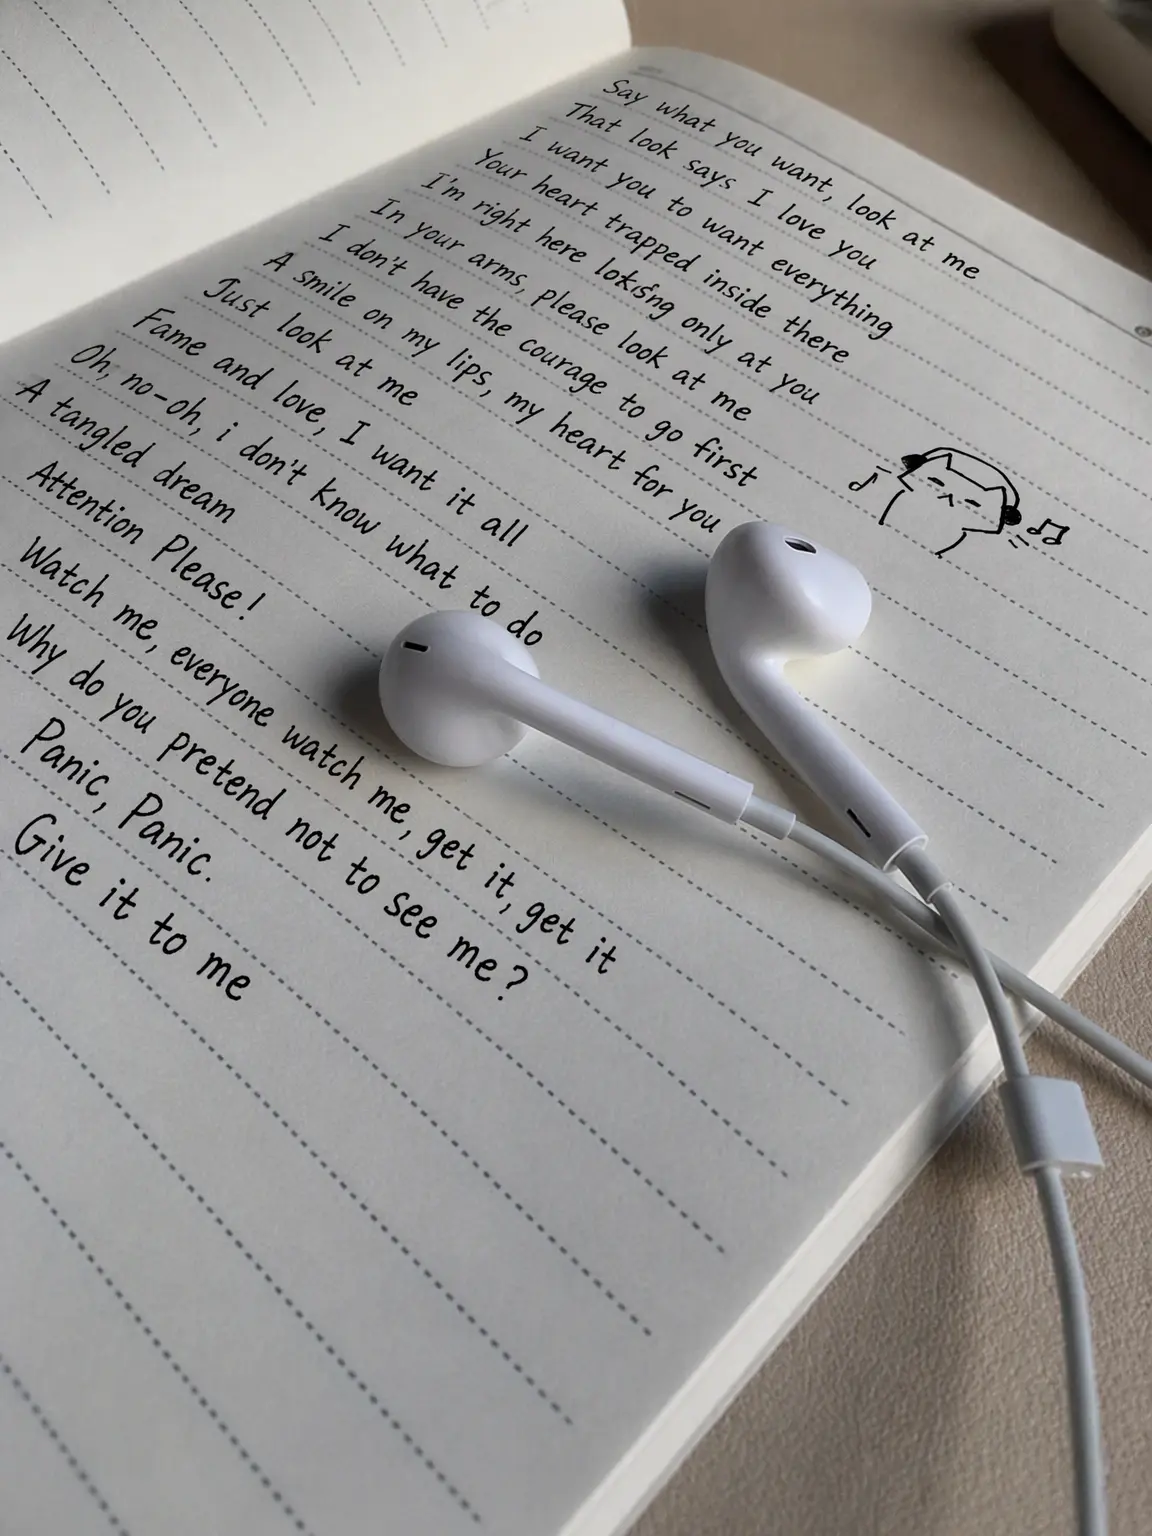 Say what you want, look at me
That look says I love you
I want you to want everything
Your heart trapped inside there
I'm right here looking only at you
In your arms, please look at me
I don't have the courage to go first
A smile on my lips, my heart for you
Just look at me
Fame and love, I want it all
Oh, no-oh, i don't know what to do
A tangled dream
Attention Please!
Watch me, everyone watch me, get it, get it
Why do you pretend not to see me?
Panic, Panic.
Give it to me